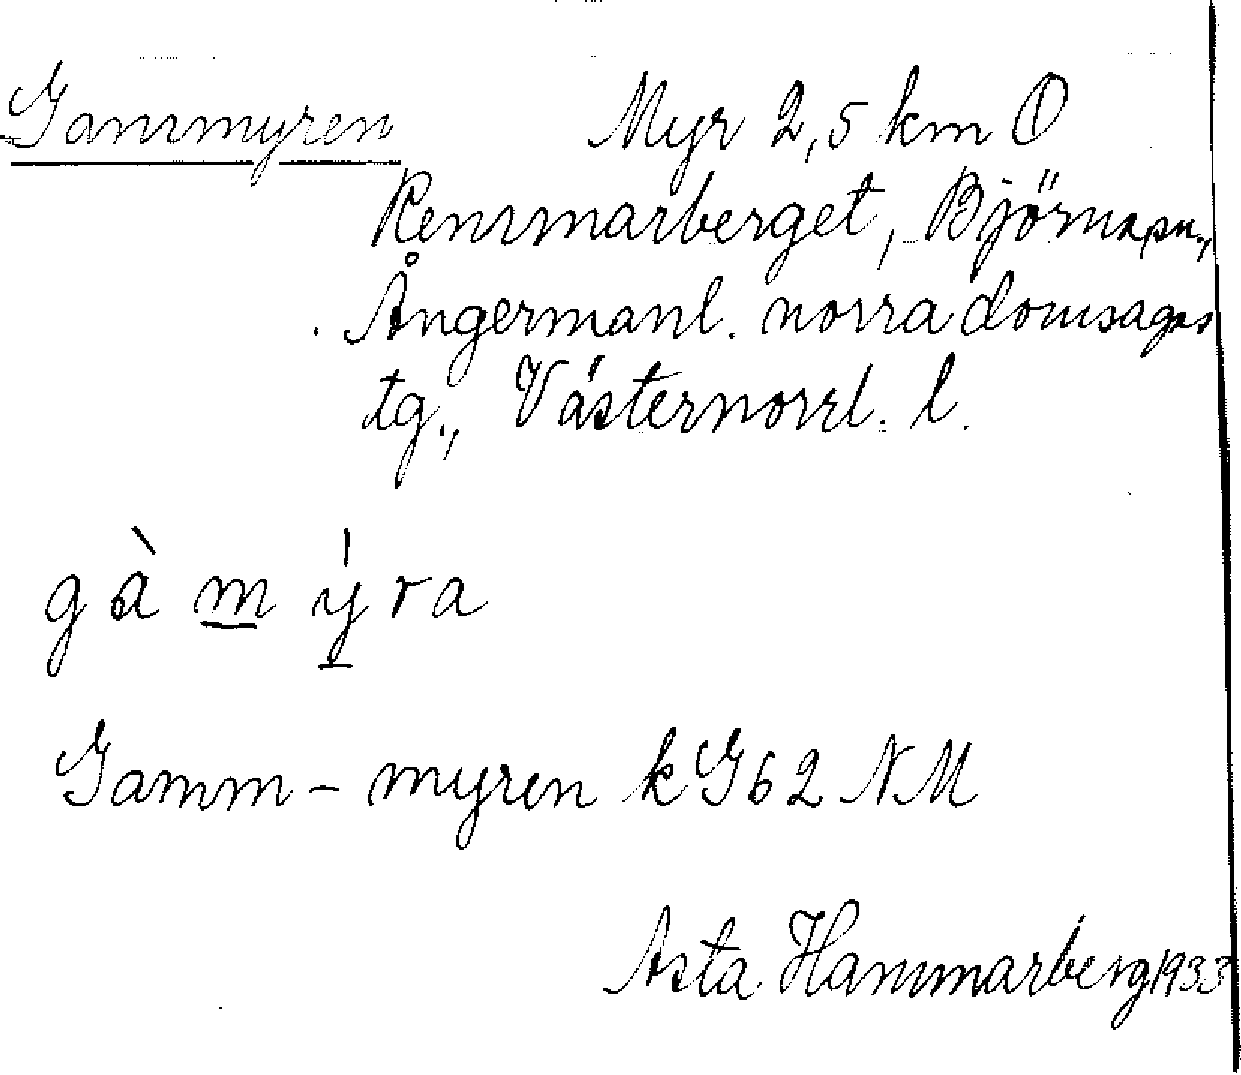 Gammyren Myr 2,5 km O
Remmarberget, Björna sn.,
Ångermanl. norra domsagas
tg., Västernorrl. l.
gà m ý ra
Gamm - myren k G 62 NM
Asta Hammarberg 1933